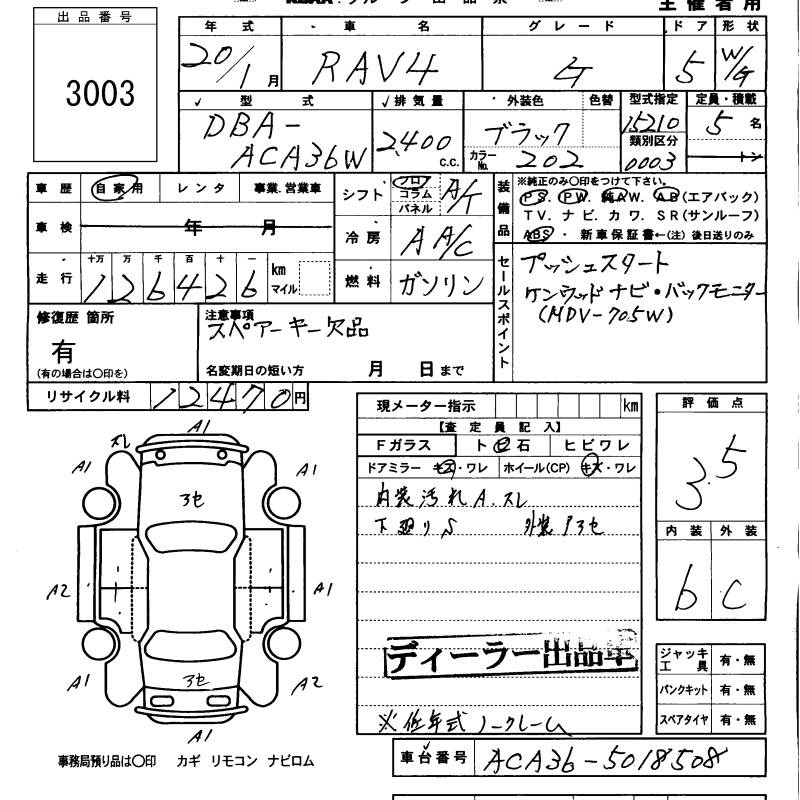 主催者用
出品番号
3003
年式 車名 グレード ドア 形状
20/1月 RAV4 G 5 W/G
型式 排気量 外装色 色替 型式指定 定員・積載
DBA-ACA36W 2,400c.c. ブラック カラーNo. 202 15210 5名
類別区分
0003 トン
車歴 自家用 レンタ 事業.営業車
シフト フロア コラム パネル A/T
装備品 ※純正のみ〇印をつけて下さい。
PS. PW. 純AW. AB(エアバック)
TV. ナビ. カワ. SR(サンルーフ)
ABS・新車保証書←(注)後日送りのみ
車検 年 月
冷房 AA/C
走行 十万 万 千 百 十 一 km マイル
126426
燃料 ガソリン
セールスポイント
プッシュスタート
ケンウッドナビ・バックモニター
(MDV-705W)
修復歴 箇所
有
(有の場合は〇印を)
注意事項
スペアーキー欠品
名変期日の短い方 月 日まで
リサイクル料 12470円
現メーター指示 km
【査定員記入】
Fガラス ト 石 ヒビワレ
ドアミラー キズ・ワレ ホイール(CP) キズ・ワレ
内装汚れ A.スレ
下廻りS 外装 タコセ
ディーラー出品車
※低年式ノークレーム
評価点
3.5
内装 外装
b C
ジャッキ工具 有・無
パンクキット 有・無
スペアタイヤ 有・無
A1
スレ
A1 A1
コセ
A2 A1
A1 A2
コセ
A1
事務局預り品は〇印 カギ リモコン ナビロム
車台番号 ACA36-5018508